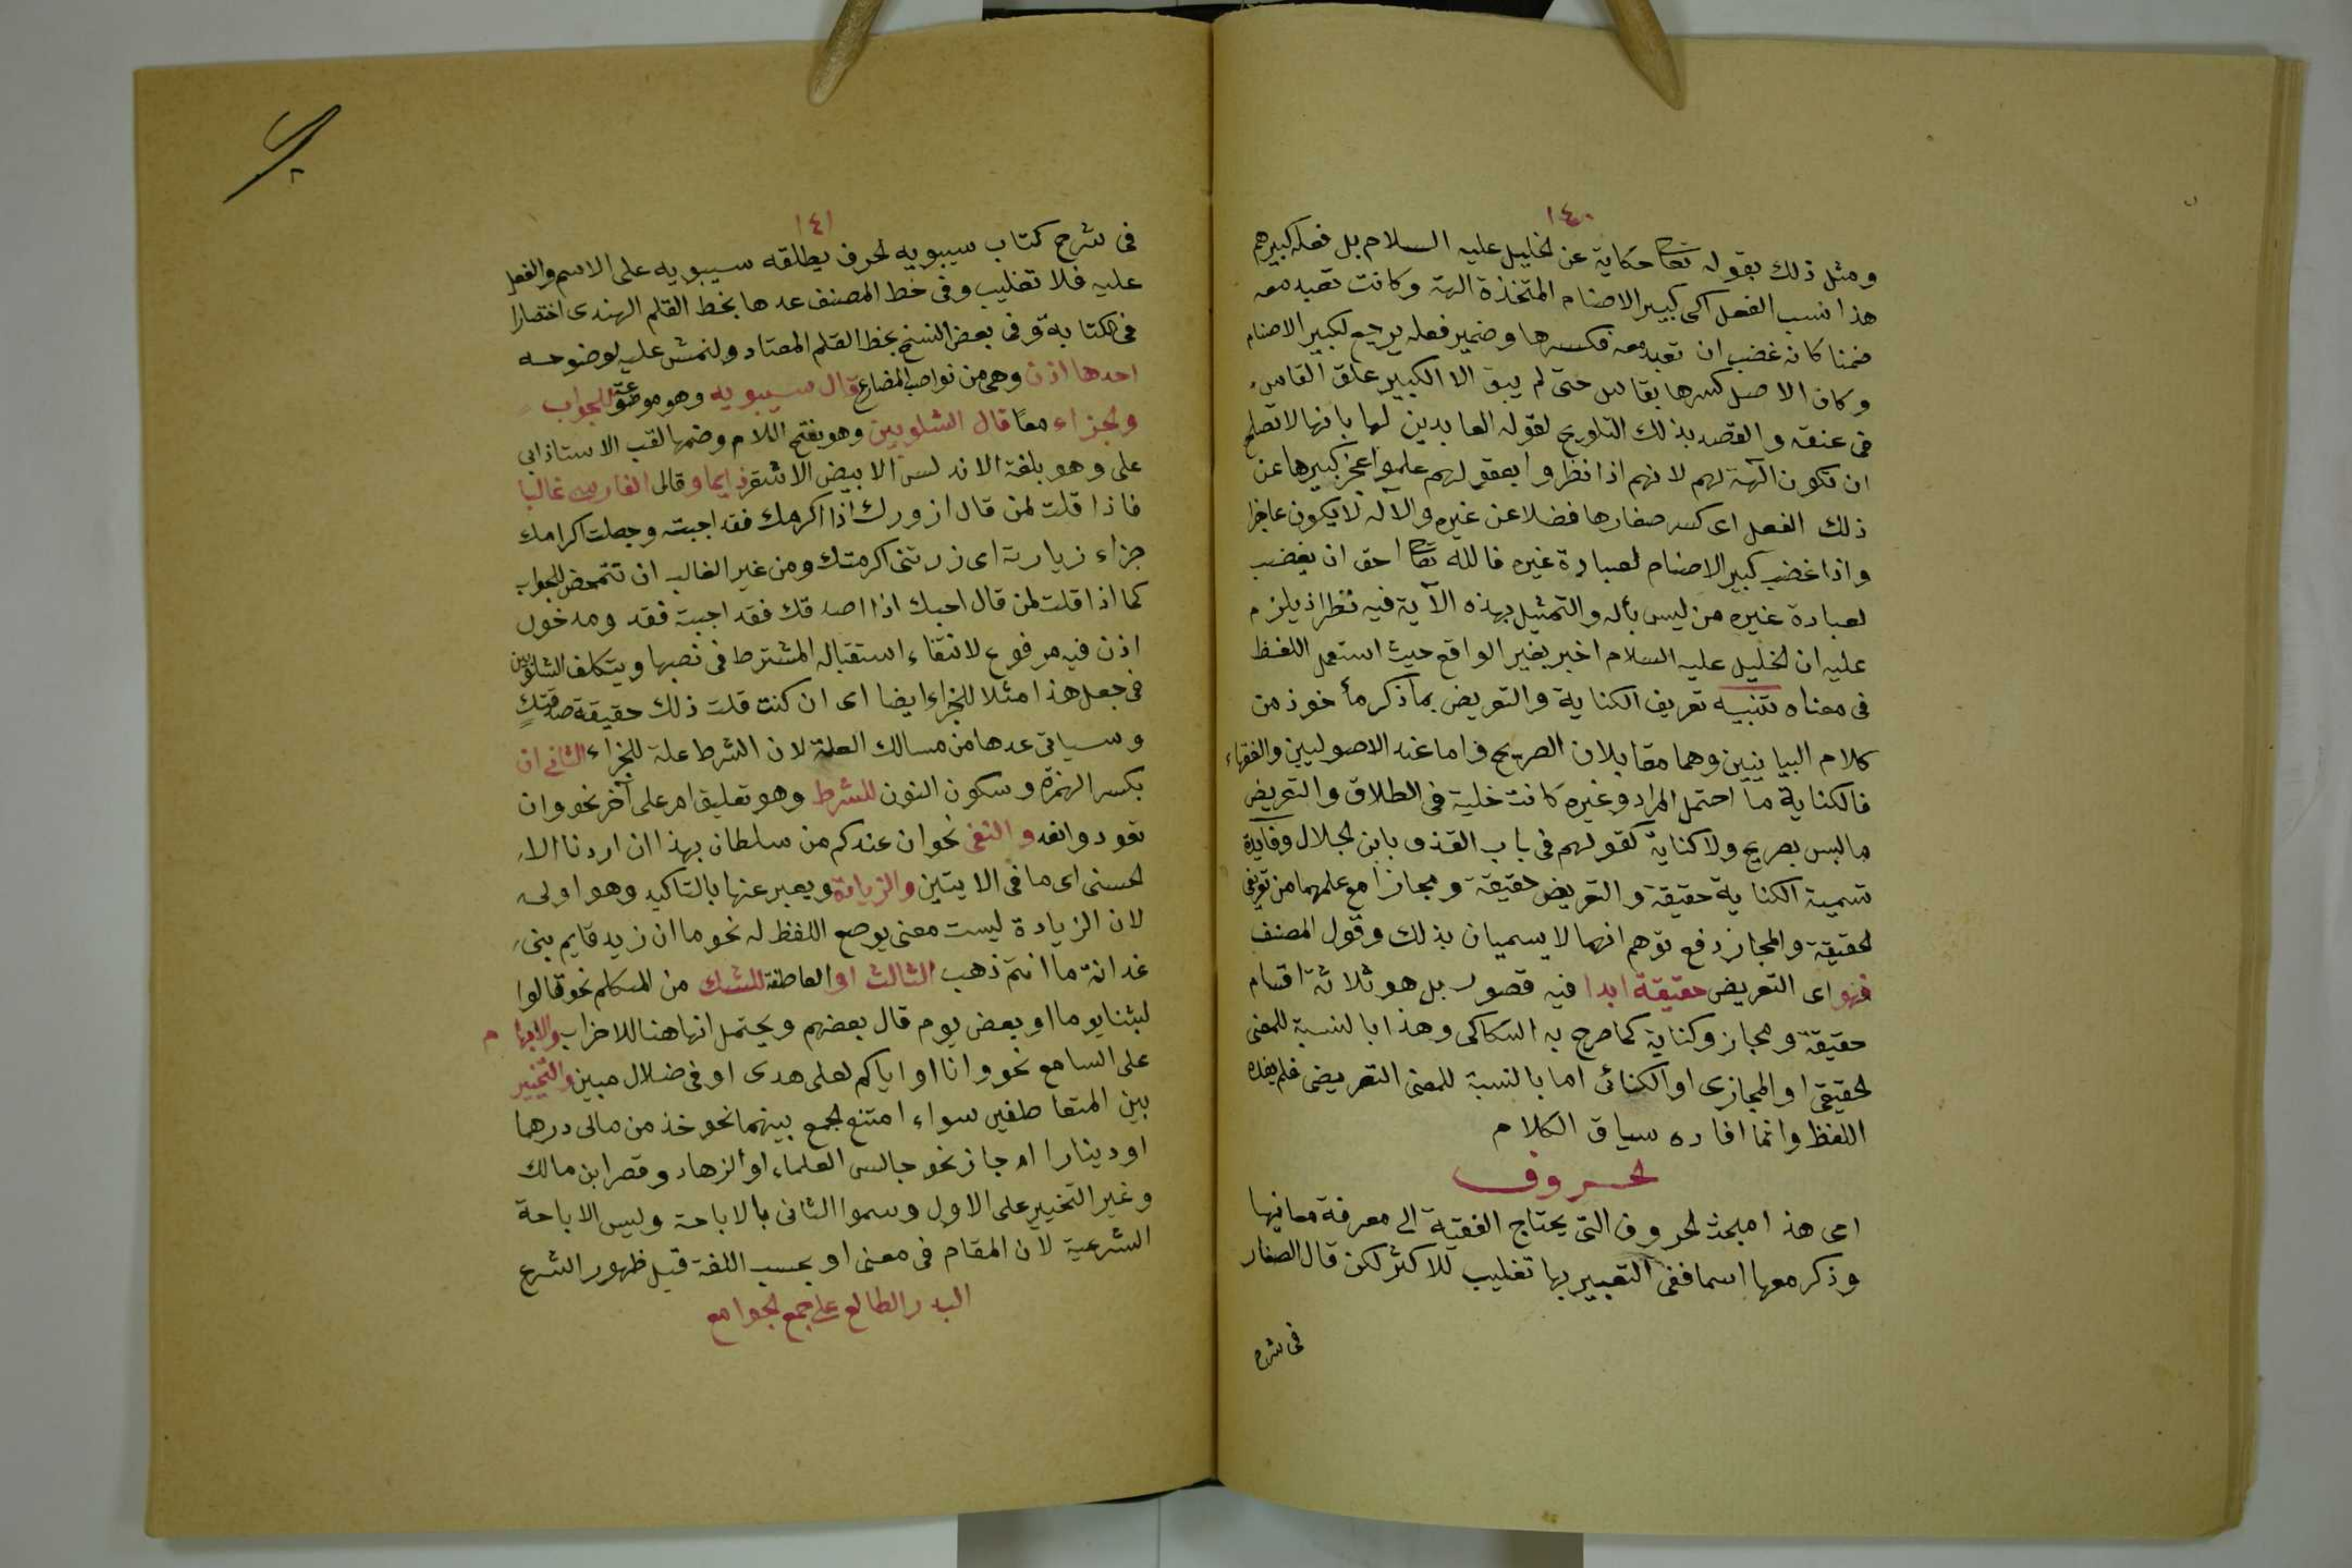 ١٤٠
ومثل ذلك بقوله تعا حكاية عن لخليل عليه السلام بل فعله كبيرهم
هذا نسب الفعل الى كبير الاصنام المتخذة الهة وكانت تعبد معه
ضمنا كانه غضب ان تعبد معه فكسرها وضمير فعله يرجع لكبير الاصنام
وكان الاصل كسرها بفاس حتى لم يبق الا الكبير علق الفاس
فى عنقه والقصد بذلك التلويح لقوله العابدين لها بانها لا تصلح
ان تكون الهة لهم لانهم اذا نظروا بعقولهم علموا عجز كبيرها عن
ذلك الفعل اى كسر صغارها فضلا عن غيره والآله لا يكون عاجزا
واذا غضب كبير الاصنام لعبادة غيره فالله تعا احق ان يغضب
لعبادة غيره من ليس بأله والتمثيل بهذه الآية فيه نظر اذ يلزم
عليه ان لخليل عليه السلام اخبر بغير الواقع حيث استعمل اللفظ
فى معناه تنبيه تعريف الكناية والتعريض بما ذكر مأخوذ من
كلام البيانيين وهما مقابلان الصريح واما عند الاصوليين والفقهاء
فالكناية ما احتمل المراد وغيره كانت خلية فى الطلاق والتعريض
ما ليس بصريح ولا كناية كقولهم فى باب القذف يا ابن لحلال وفايدة
تسمية الكناية حقيقة والتعريض حقيقة ومجازا مع علمهما من تعريفى
لحقيقة والمجاز دفع توهم انهما لا يسميان بذلك وقول المصنف
فهو اى التعريض حقيقة ابدا فيه قصور بل هو ثلاثة اقسام
حقيقة ومجاز وكناية كما صرح به السكاكى وهذا بالنسبة للمعنى
لحقيقى او المجازى او الكنائى اما بالنسبة للمعنى التعريضى فلم يفده
اللفظ وانما افاده سياق الكلام
لحروف
اى هذا مبحث لحروف التى يحتاج الفقيه الى معرفة معانيها
وذكر معها اسما ففى التعبير بها تغليب للاكثر لكن قال الصفار
فى شرح
١٤١
فى شرح كتاب سيبويه لحرف يطلقه سيبويه على الاسم والفعل
عليه فلا تغليب وفى خط المصنف عدها بخط القلم الهندى اختصارا
فى الكتابة وفى بعض النسخ بخط القلم المعتاد ولنمش عليه لوضوحه
احدها اذن وهى من نواصب المضارع قال سيبويه وهو موضوعة للجواب
ولجزاء معا قال الشلوبين وهو بفتح اللام وضمها لقب الاستاذ ابى
على وهو بلغة الاندلس الابيض الاشقر دايما وقال الفارسى غالبا
فاذا قلت لمن قال ازورك اذا اكرمك فقد اجبته وجعلت اكرامك
جزاء زيارته اى زرتنى اكرمتك ومن غير الغالب ان تتمحض للجواب
كما اذا قلت لمن قال احبك اذا اصدقك فقد اجبته فقد ومدخول
اذن فيه مرفوع لانتفاء استقباله المشترط فى نصبها ويتكلف الشلوبين
فى جعل هذا مثلا للجزاء ايضا اى ان كنت قلت ذلك حقيقة صدقتك
وسياتى عدها من مسالك العلة لان الشرط علة للجزاء الثانى ان
بكسر الهمزة وسكون النون للشرط وهو تعليق امر على آخر نحو وان
تعودوا نعد والنفى نحو ان عندكم من سلطان بهذا ان اردنا الا
لحسنى اى ما فى الايتين والزيادة ويعبر عنها بالتاكيد وهو اولى
لان الزيادة ليست معنى يوضع اللفظ له نحو ما ان زيد قايم بنى
غدانة ما ان انتم ذهب الثالث او العاطفة للشك من المتكلم نحو قالوا
لبثنا يوما او بعض يوم قال بعضهم ويحتمل انها هنا للاضراب والابهام
على السامع نحو وانا او اياكم لعلى هدى او فى ضلال مبين والتخيير
بين المتعاطفين سواء امتنع لجمع بينهما نحو خذ من مالى درهما
او دينارا ام جاز نحو جالس العلماء او الزهاد وقصر ابن مالك
وغيره التخيير على الاول وسموا الثانى بالاباحة وليس الاباحة
الشرعية لان المقام فى معنى او بحسب اللغة قبل ظهور الشرع
البدر الطالع على جمع لجوامع